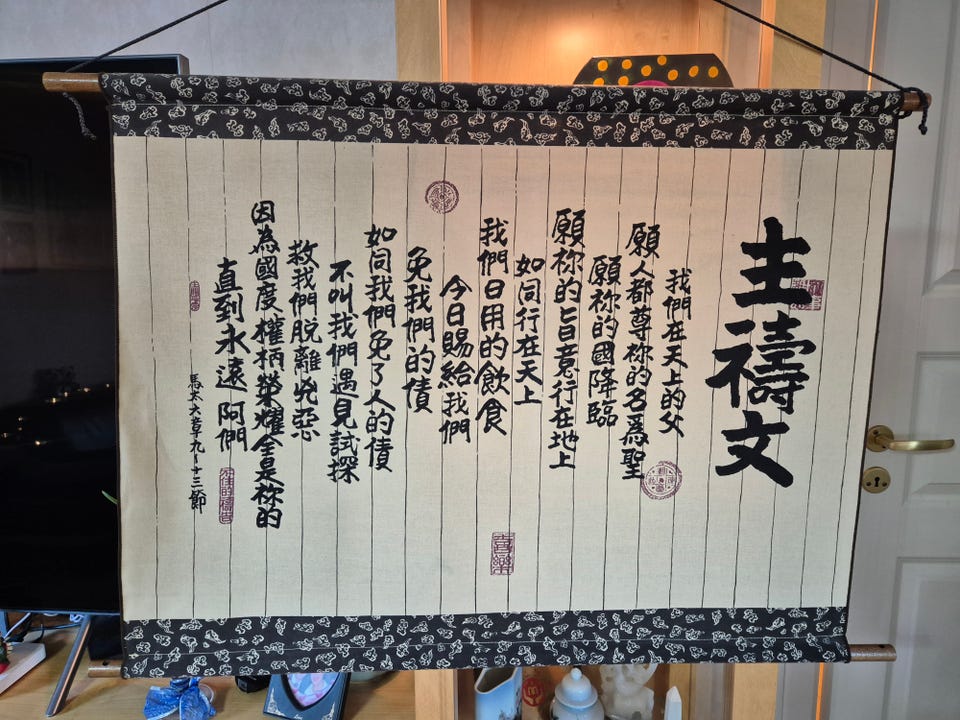 主禱文
我們在天上的父
願人都尊祢的名為聖
願祢的國降臨
願祢的旨意行在地上
如同行在天上
我們日用的飲食
今日賜給我們
免我們的債
如同我們免了人的債
不叫我們遇見試探
救我們脫離兇惡
因為國度權柄榮耀全是祢的
直到永遠阿們
馬太六章九~十三節
喜樂